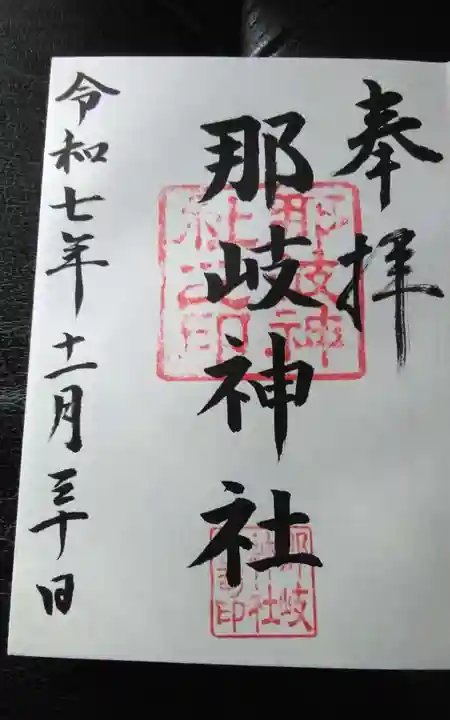 奉拝
那岐神社
令和七年十一月三十日
那岐神
社之印
那岐
神社
印